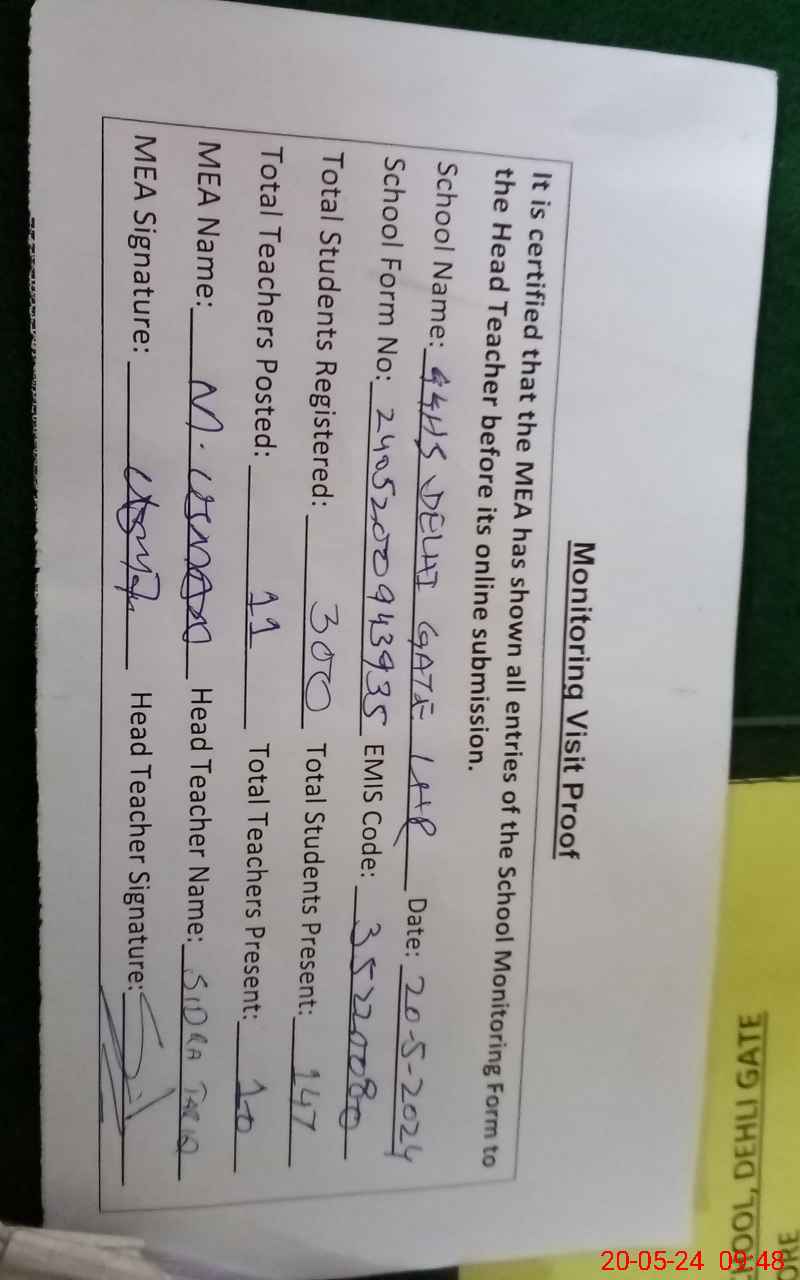 Monitoring Visit Proof
It is certified that the MEA has shown all entries of the School Monitoring Form to
the Head Teacher before its online submission.
School Name: GGHS DELHI GATE LHR Date: 20-5-2024
School Form No: 2405200943935 EMIS Code: 35220080
Total Students Registered: 300 Total Students Present: 147
Total Teachers Posted: 11 Total Teachers Present: 10
MEA Name: M. USMAN Head Teacher Name: SIDRA TARIQ
MEA Signature: Head Teacher Signature:
OOL, DEHLI GATE
20-05-24 09:48